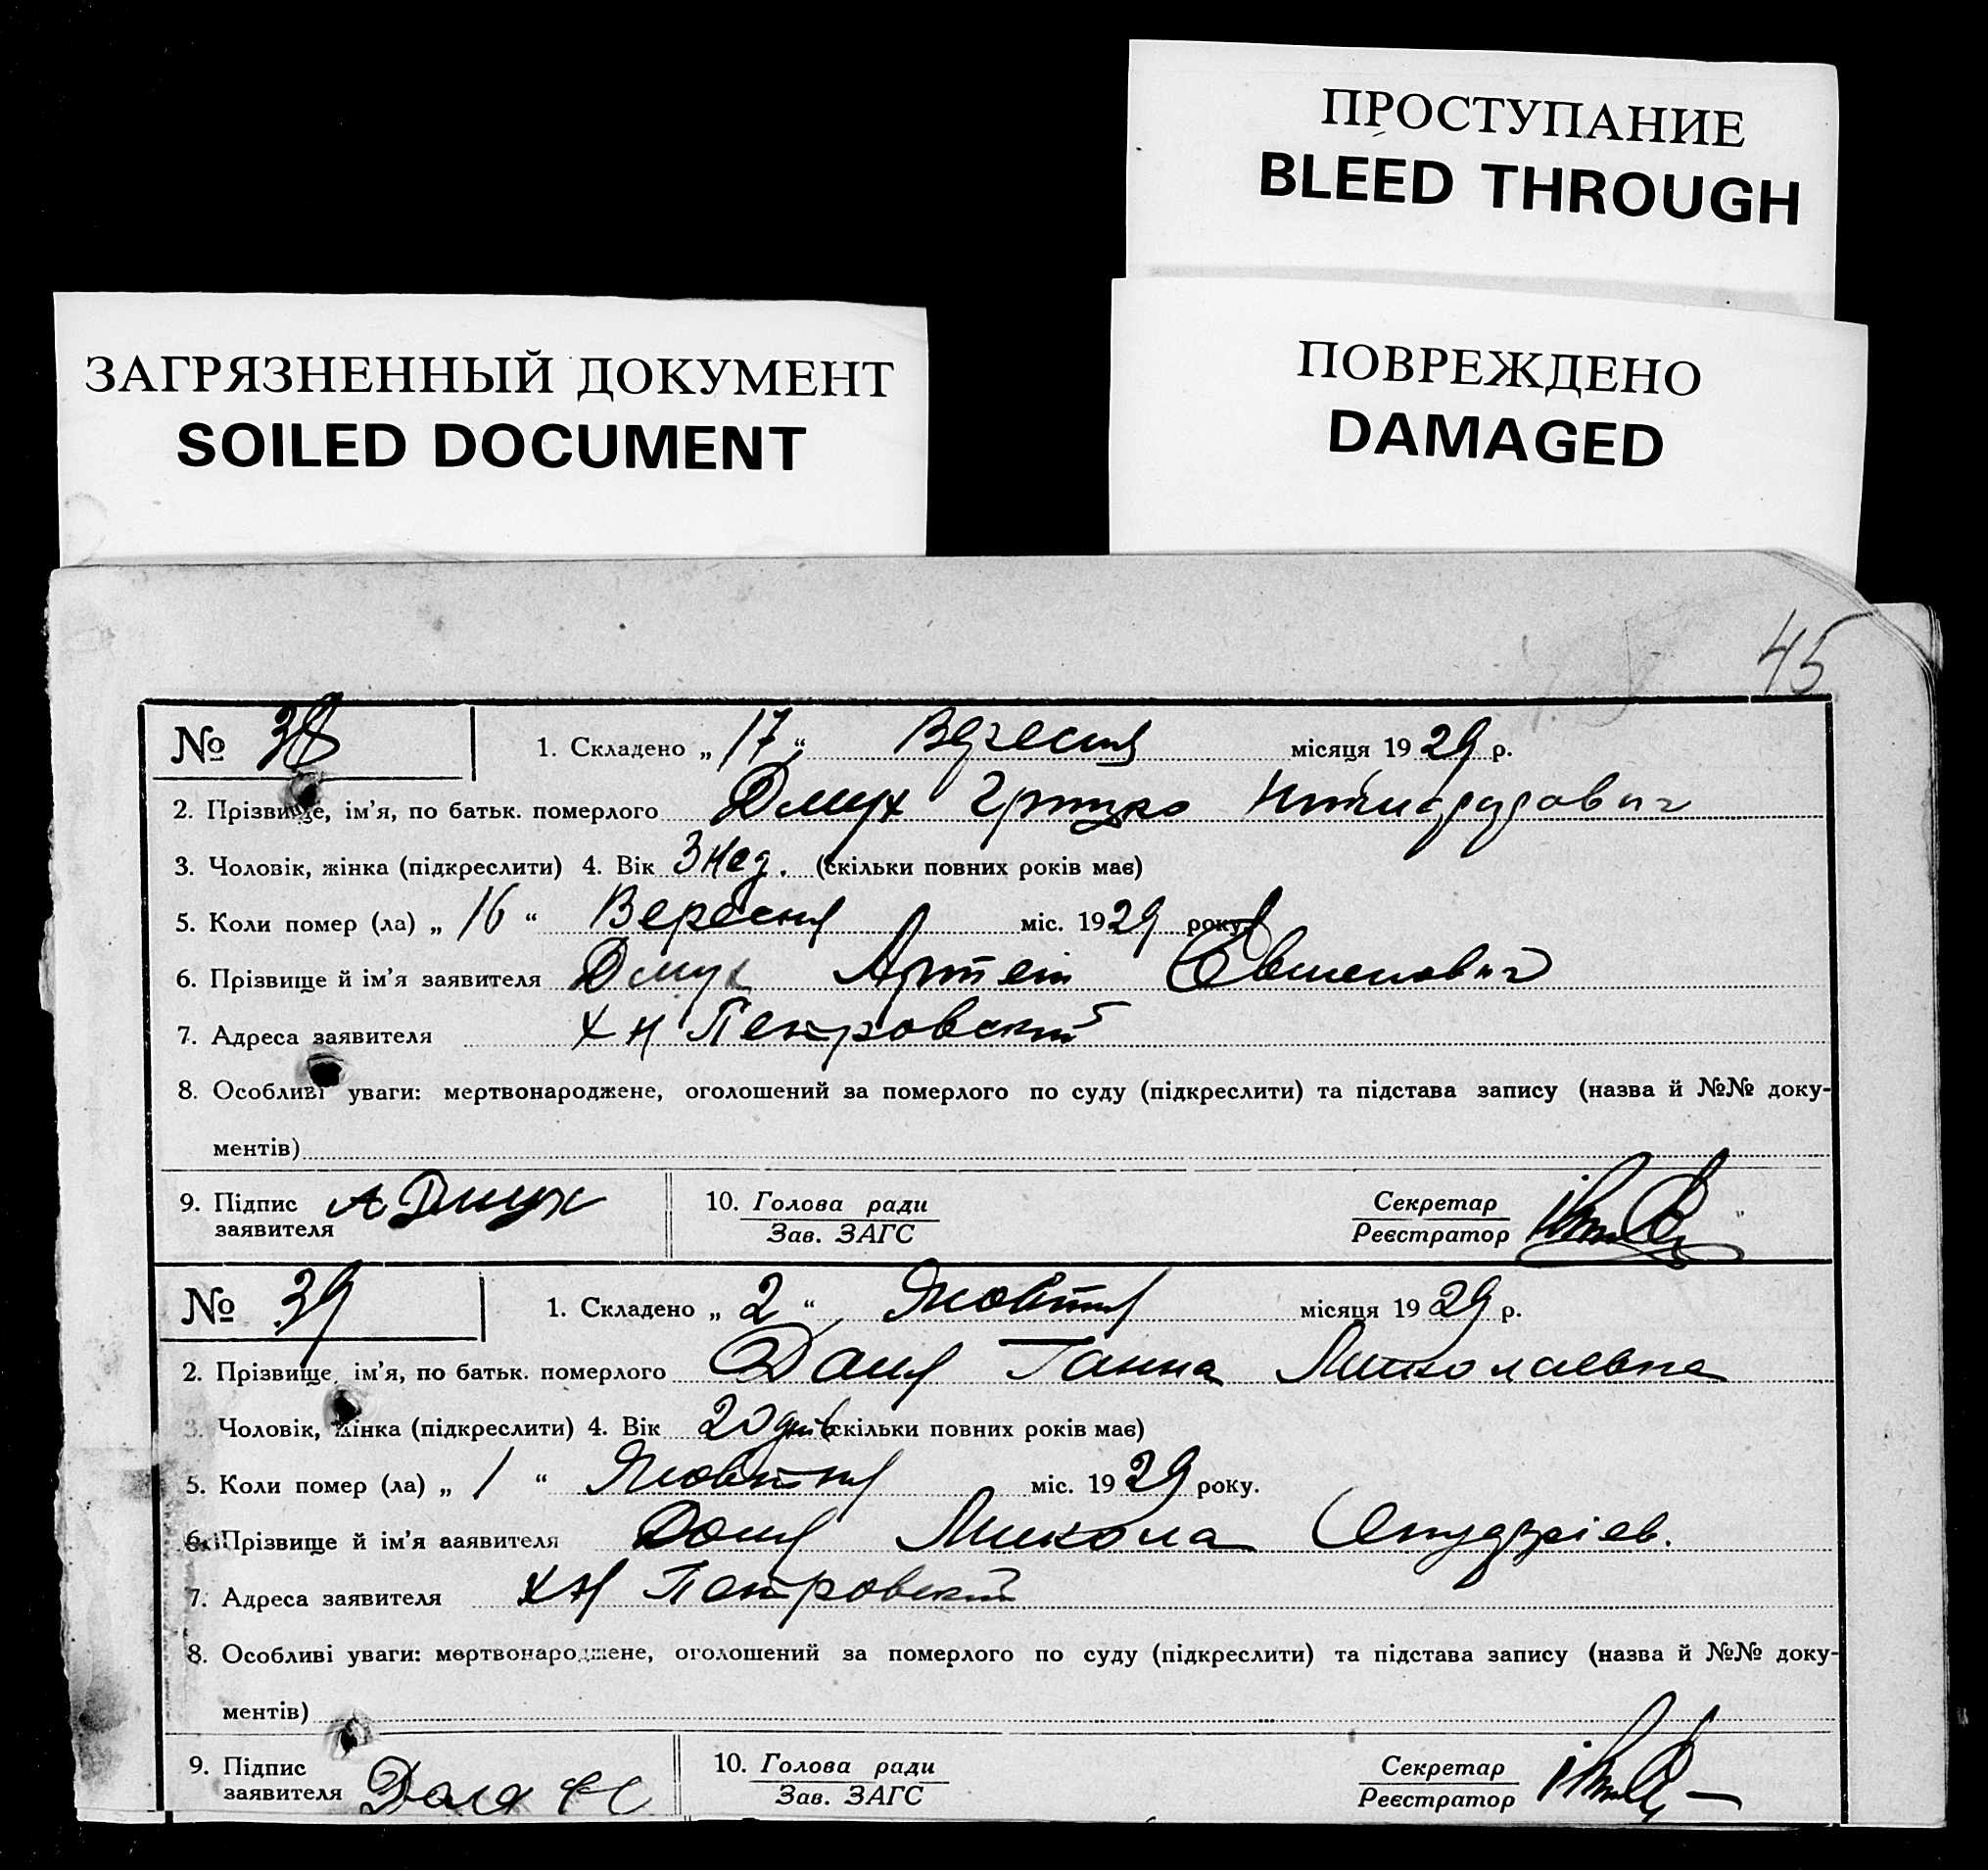 ПРОСТУПАНИЕ
BLEED THROUGH
ЗАГРЯЗНЕННЫЙ ДОКУМЕНТ
SOILED DOCUMENT
ПОВРЕЖДЕНО
DAMAGED
45
№ 38 1. Складено „ 17 “ Вересня місяця 1929 р.
2. Прізвище, ім’я, по батьк. померлого Дмух Грицко
3. Чоловік, жінка (підкреслити) 4. Вік 3 нед. (скільки повних років має)
5. Коли помер (ла) „ 16 “ Вересня міс. 1929 року.
6. Прізвище й ім’я заявителя Дмух Артем
7. Адреса заявителя Петровский
8. Особливі уваги: мертвонароджене, оголошений за померлого по суду (підкреслити) та підстава запису (назва й №№ доку-
ментів)
9. Підпис заявителя А Дмух 10. Голова ради Зав. ЗАГС Секретар Реєстратор
№ 39 1. Складено „ 2 “ Жовтня місяця 1929 р.
2. Прізвище, ім’я, по батьк. померлого Ганна Миколаевна
3. Чоловік, жінка (підкреслити) 4. Вік 20 днів (скільки повних років має)
5. Коли помер (ла) „ 1 “ Жовтня міс. 1929 року.
6. Прізвище й ім’я заявителя Микола
7. Адреса заявителя Петровский
8. Особливі уваги: мертвонароджене, оголошений за померлого по суду (підкреслити) та підстава запису (назва й №№ доку-
ментів)
9. Підпис заявителя 10. Голова ради Зав. ЗАГС Секретар Реєстратор